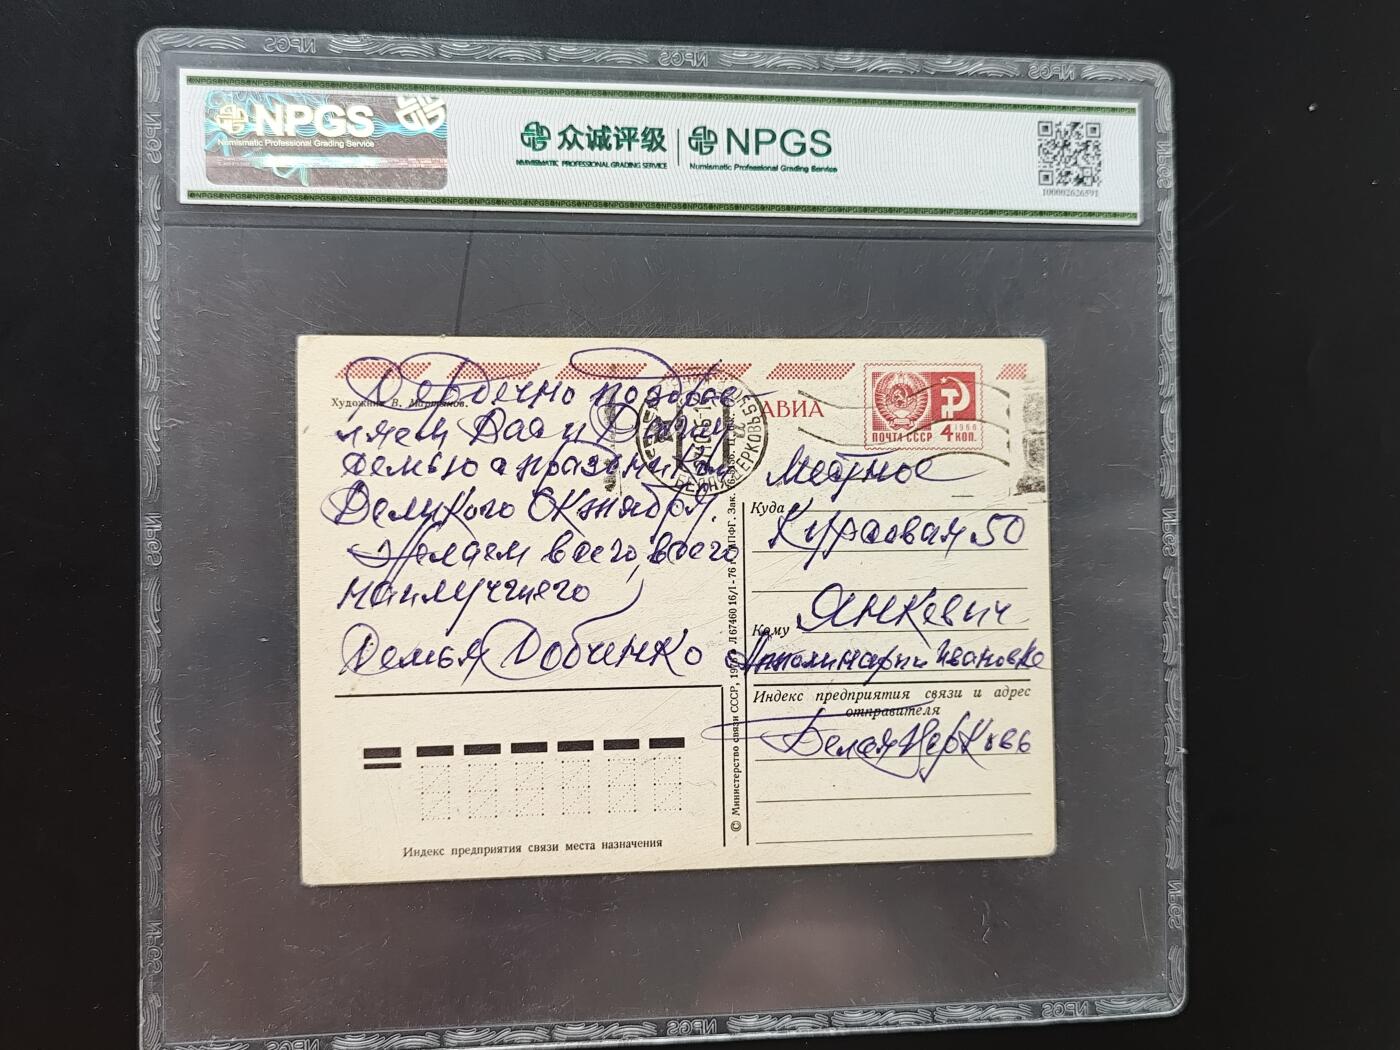 NPGS
Numismatic Professional Grading Service
众诚评级
NUMISMATIC PROFESSIONAL GRADING SERVICE
NPGS
Numismatic Professional Grading Service
100002626591
Сердечно поздрав
ляем Вас и Вашу
семью с праздником
Великого Октября.
Желаем всего, всего
наилучшего
Семья Добченко
Художник В. Мартынов.
АВИА
ПОЧТА СССР
1966
4 КОП.
БЕЛАЯ ЦЕРКОВЬ
Местное
Куда
Курсовая 50
Кому
Янкевич
Апполинарии Ивановне
Индекс предприятия связи и адрес
отправителя
Белая Церковь
© Министерство связи СССР,
Индекс предприятия связи места назначения